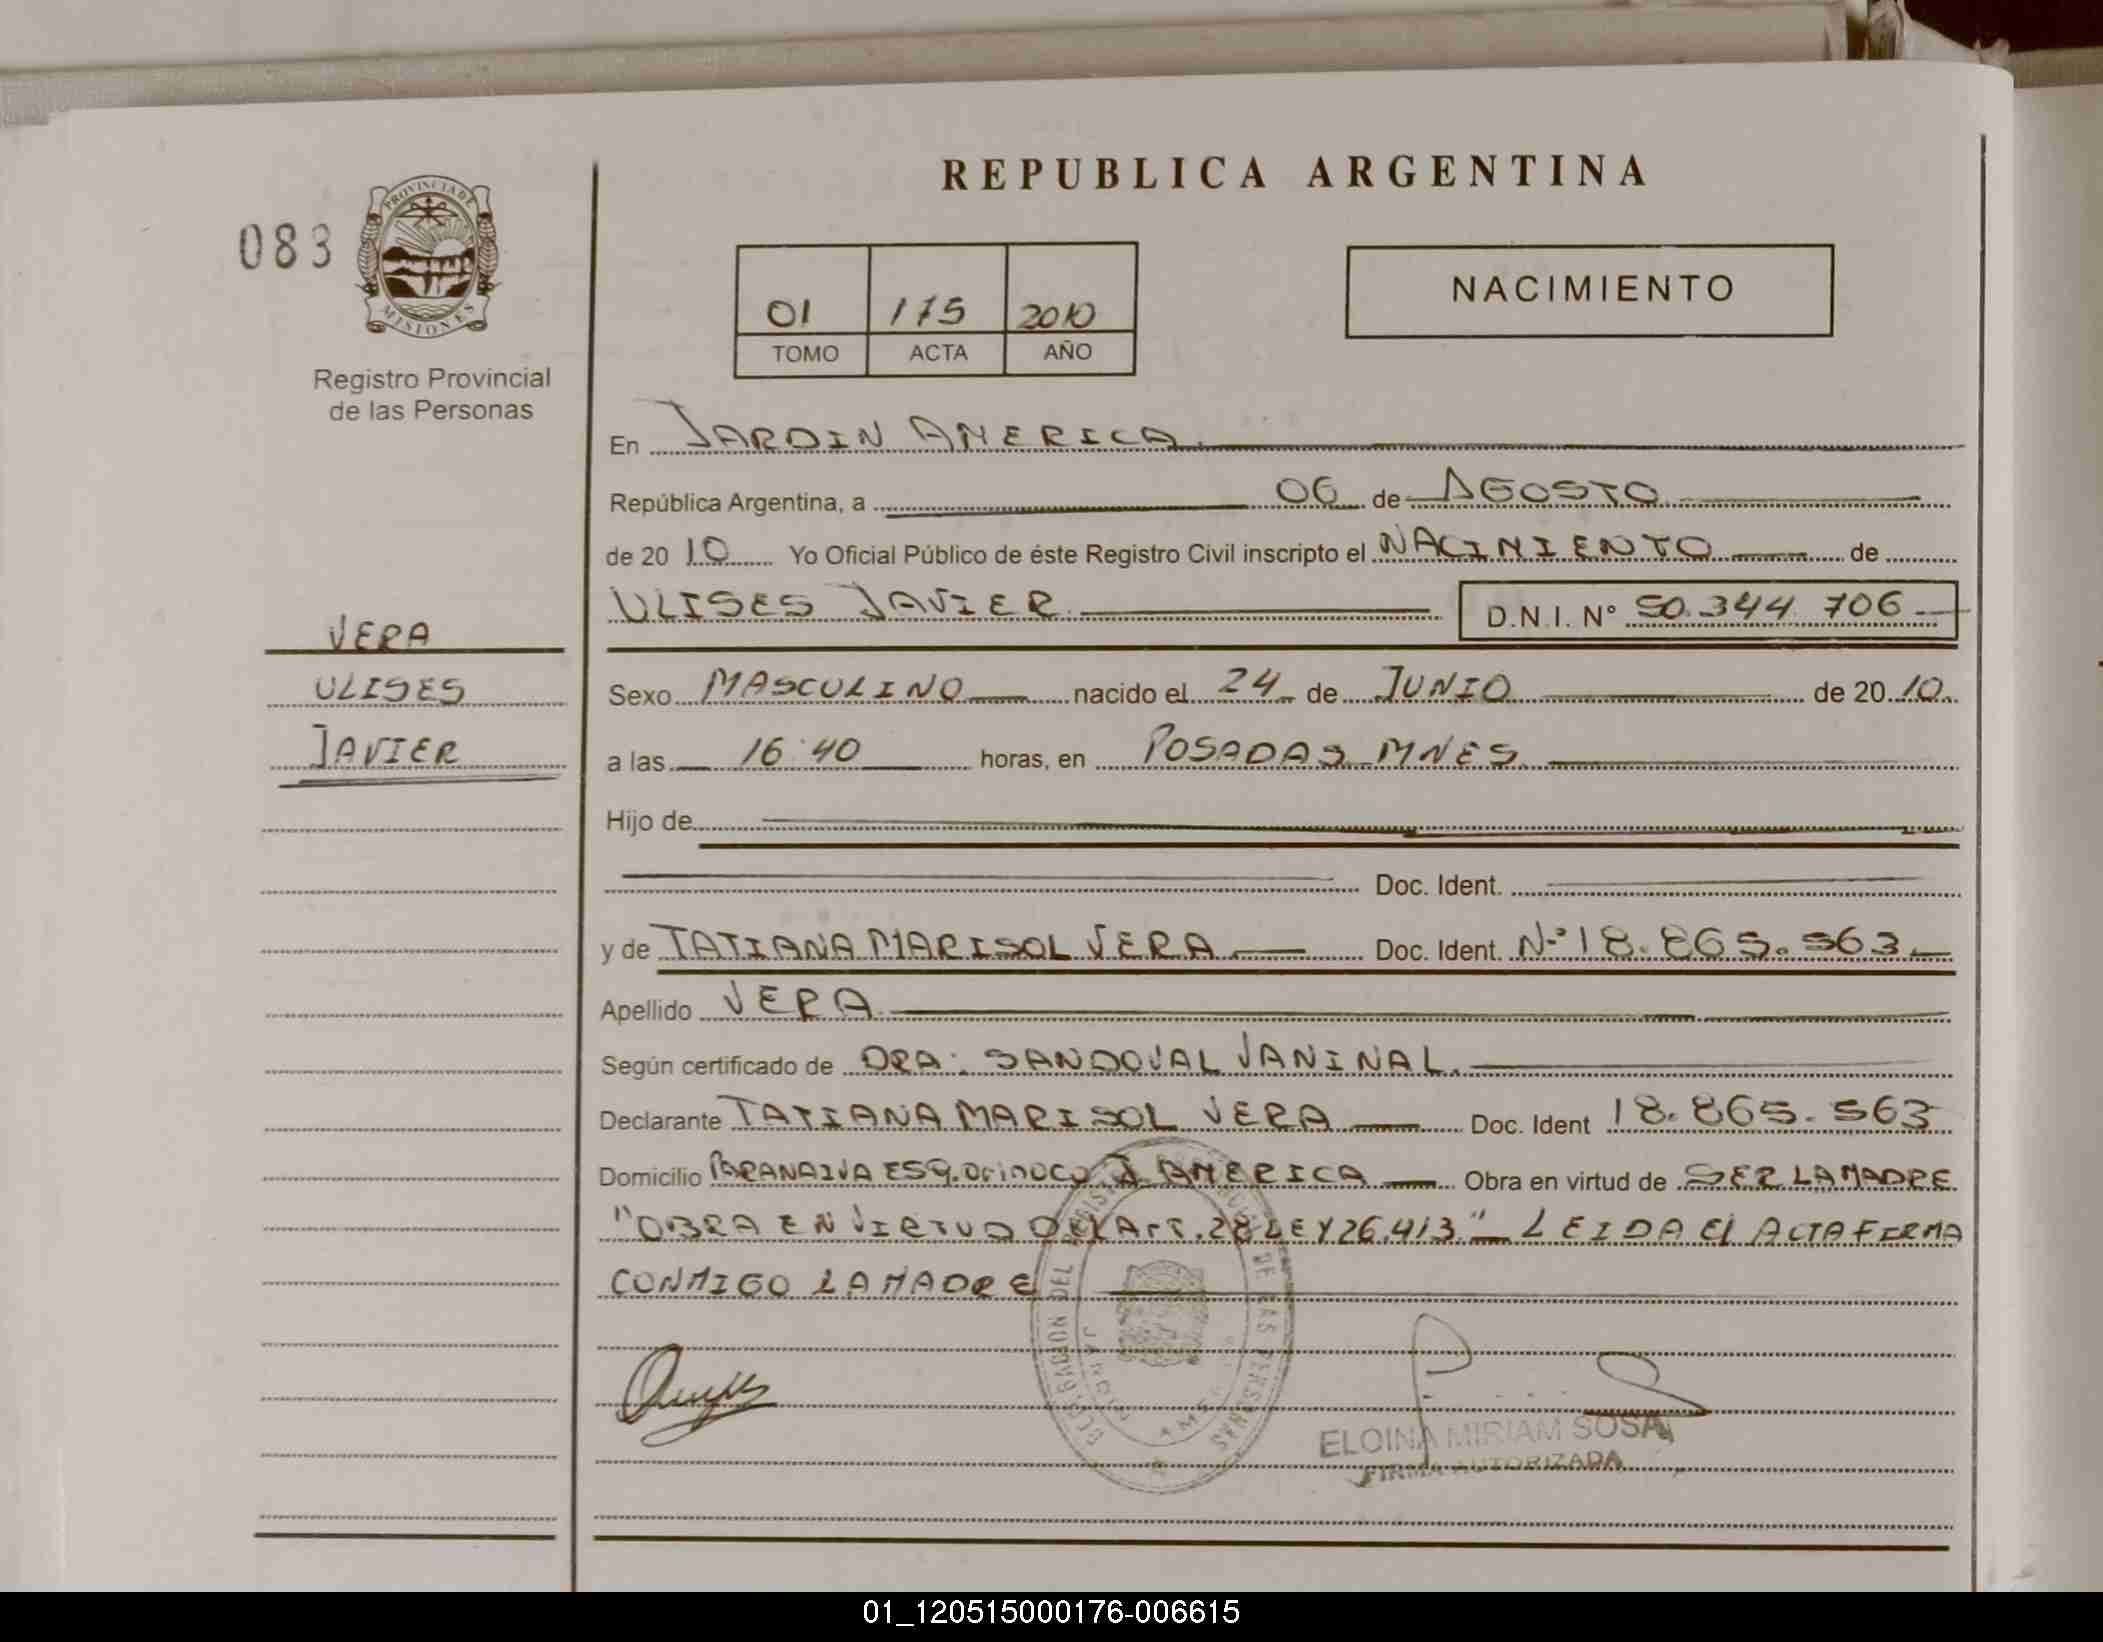 REPUBLICA ARGENTINA
083
PROVINCIA DE
MISIONES
Registro Provincial
de las Personas
01 175 2010
TOMO ACTA AÑO
NACIMIENTO
En JARDIN AMERICA.
República Argentina, a 06 de AGOSTO
de 20 10 Yo Oficial Público de éste Registro Civil inscripto el NACIMIENTO de
ULISES JAVIER D.N.I. N° 50.344.706
VERA
ULISES
JAVIER
Sexo MASCULINO nacido el 24 de JUNIO de 20 10
a las 16:40 horas, en POSADAS MNES
Hijo de
Doc. Ident.
y de TATIANA MARISOL VERA Doc. Ident. N° 18.865.563
Apellido VERA
Según certificado de DRA: SANDOVAL VANINA L.
Declarante TATIANA MARISOL VERA Doc. Ident 18.865.563
Domicilio PARANAIVA ESQ. Orinoco J. AMERICA Obra en virtud de SER LA MADRE
"OBRA EN VIRTUD DEL Art. 28 LEY 26.413" LEIDA El ACTA FIRMA
CONMIGO LA MADRE
DELEGACION DEL REGISTRO PROVINCIAL DE LAS PERSONAS
JARDIN AME
ELOINA MIRIAM SOSA
FIRMA AUTORIZADA
01_120515000176-006615